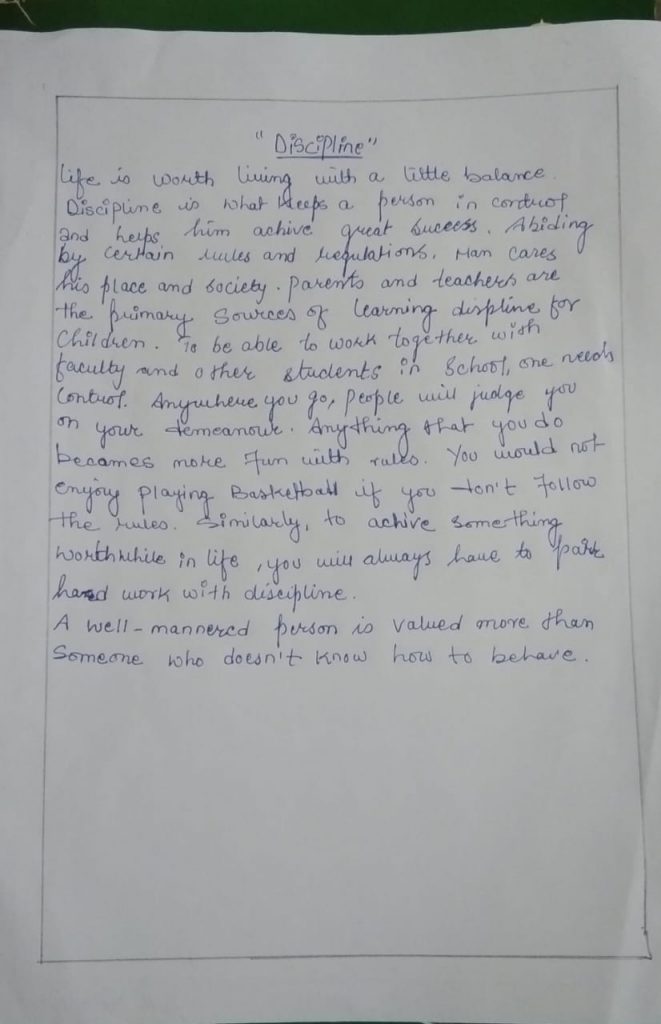 "Discipline"
Life is worth living with a little balance.
Discipline is what keeps a person in control
and helps him achive great success. Abiding
by certain rules and regulations. Man cares
his place and society. Parents and teachers are
the primary Sources of learning displine for
Children. To be able to work together with
faculty and other students in School, one needs
Control. Anywhere you go, people will judge you
on your demeanour. Anything that you do
becomes more Fun with rules. You would not
enjoy playing Basketball if you don't Follow
the rules. Similarly, to achive something
worthwhile in life, you will always have to park
hard work with discipline.
A well-mannered person is valued more than
Someone who doesn't know how to behave.